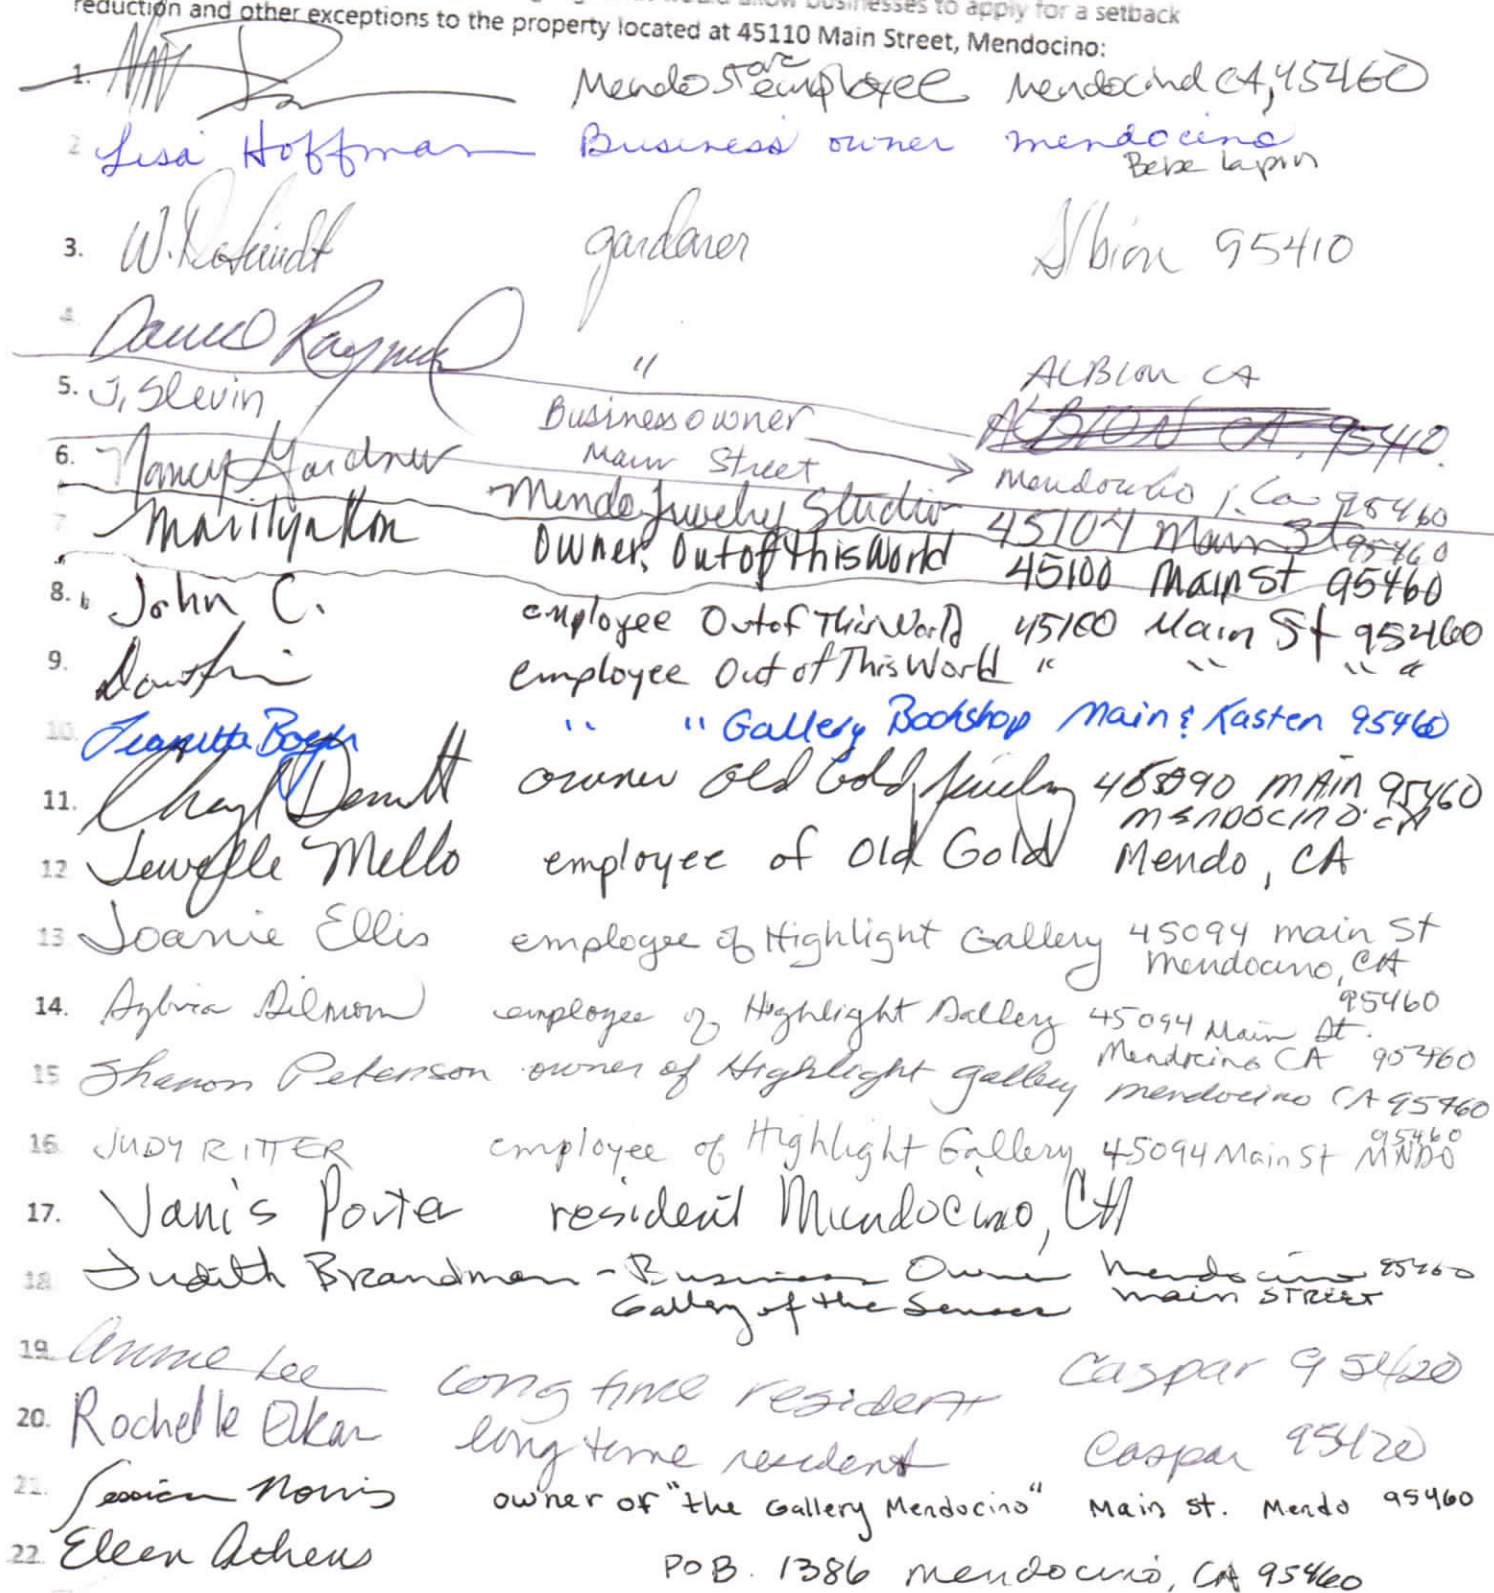 businesses to apply for a setback
reduction and other exceptions to the property located at 45110 Main Street, Mendocino:
1. Mendo employee Mendocino CA, 95460
2 Lisa Hoffman Business owner mendocino
Bebe Lapin
3. W. gardener Albion 95410
4 Raymond " ALBION CA
ALBION CA. 95410.
5. J. Slevin Business owner
Main Street Mendocino, Ca 95460
6. Nancy Gardner Mendo Jewelry Studio 45104 Main St 95460
7 Marilyn Owner, Out of This World 45100 Main St 95460
8. John C. employee Out of This World 45100 Main St 95460
9. employee Out of This World " " " "
10. " " Gallery Bookshop Main & Kasten 95460
11. Cheryl owner Old Gold Jewelry 45090 MAin 95460
MENDOCINO. CA
12 Jewelle Mello employee of Old Gold Mendo, CA
13 Joanie Ellis employee of Highlight Gallery 45094 main St
Mendocino, CA
95460
14. Sylvia employee of Highlight Gallery 45094 Main St.
Mendocino CA 95460
15 Sharon Peterson owner of Highlight gallery mendocino CA 95460
16. JUDY RITTER employee of Highlight Gallery 45094 Main St MNDO
95460
17. Janis Porter resident Mendocino, CA
18. Judith Brandman - Business Owner Mendocino 95460
Gallery of the Senses main STREET
19. Annie Lee Long time resident Caspar 95420
20. Rochelle Elkan long time resident Caspar 95420
21. Jessica Norris owner of "the Gallery Mendocino" Main St. Mendo 95460
22. Eleen Athens POB. 1386 Mendocino, CA 95460